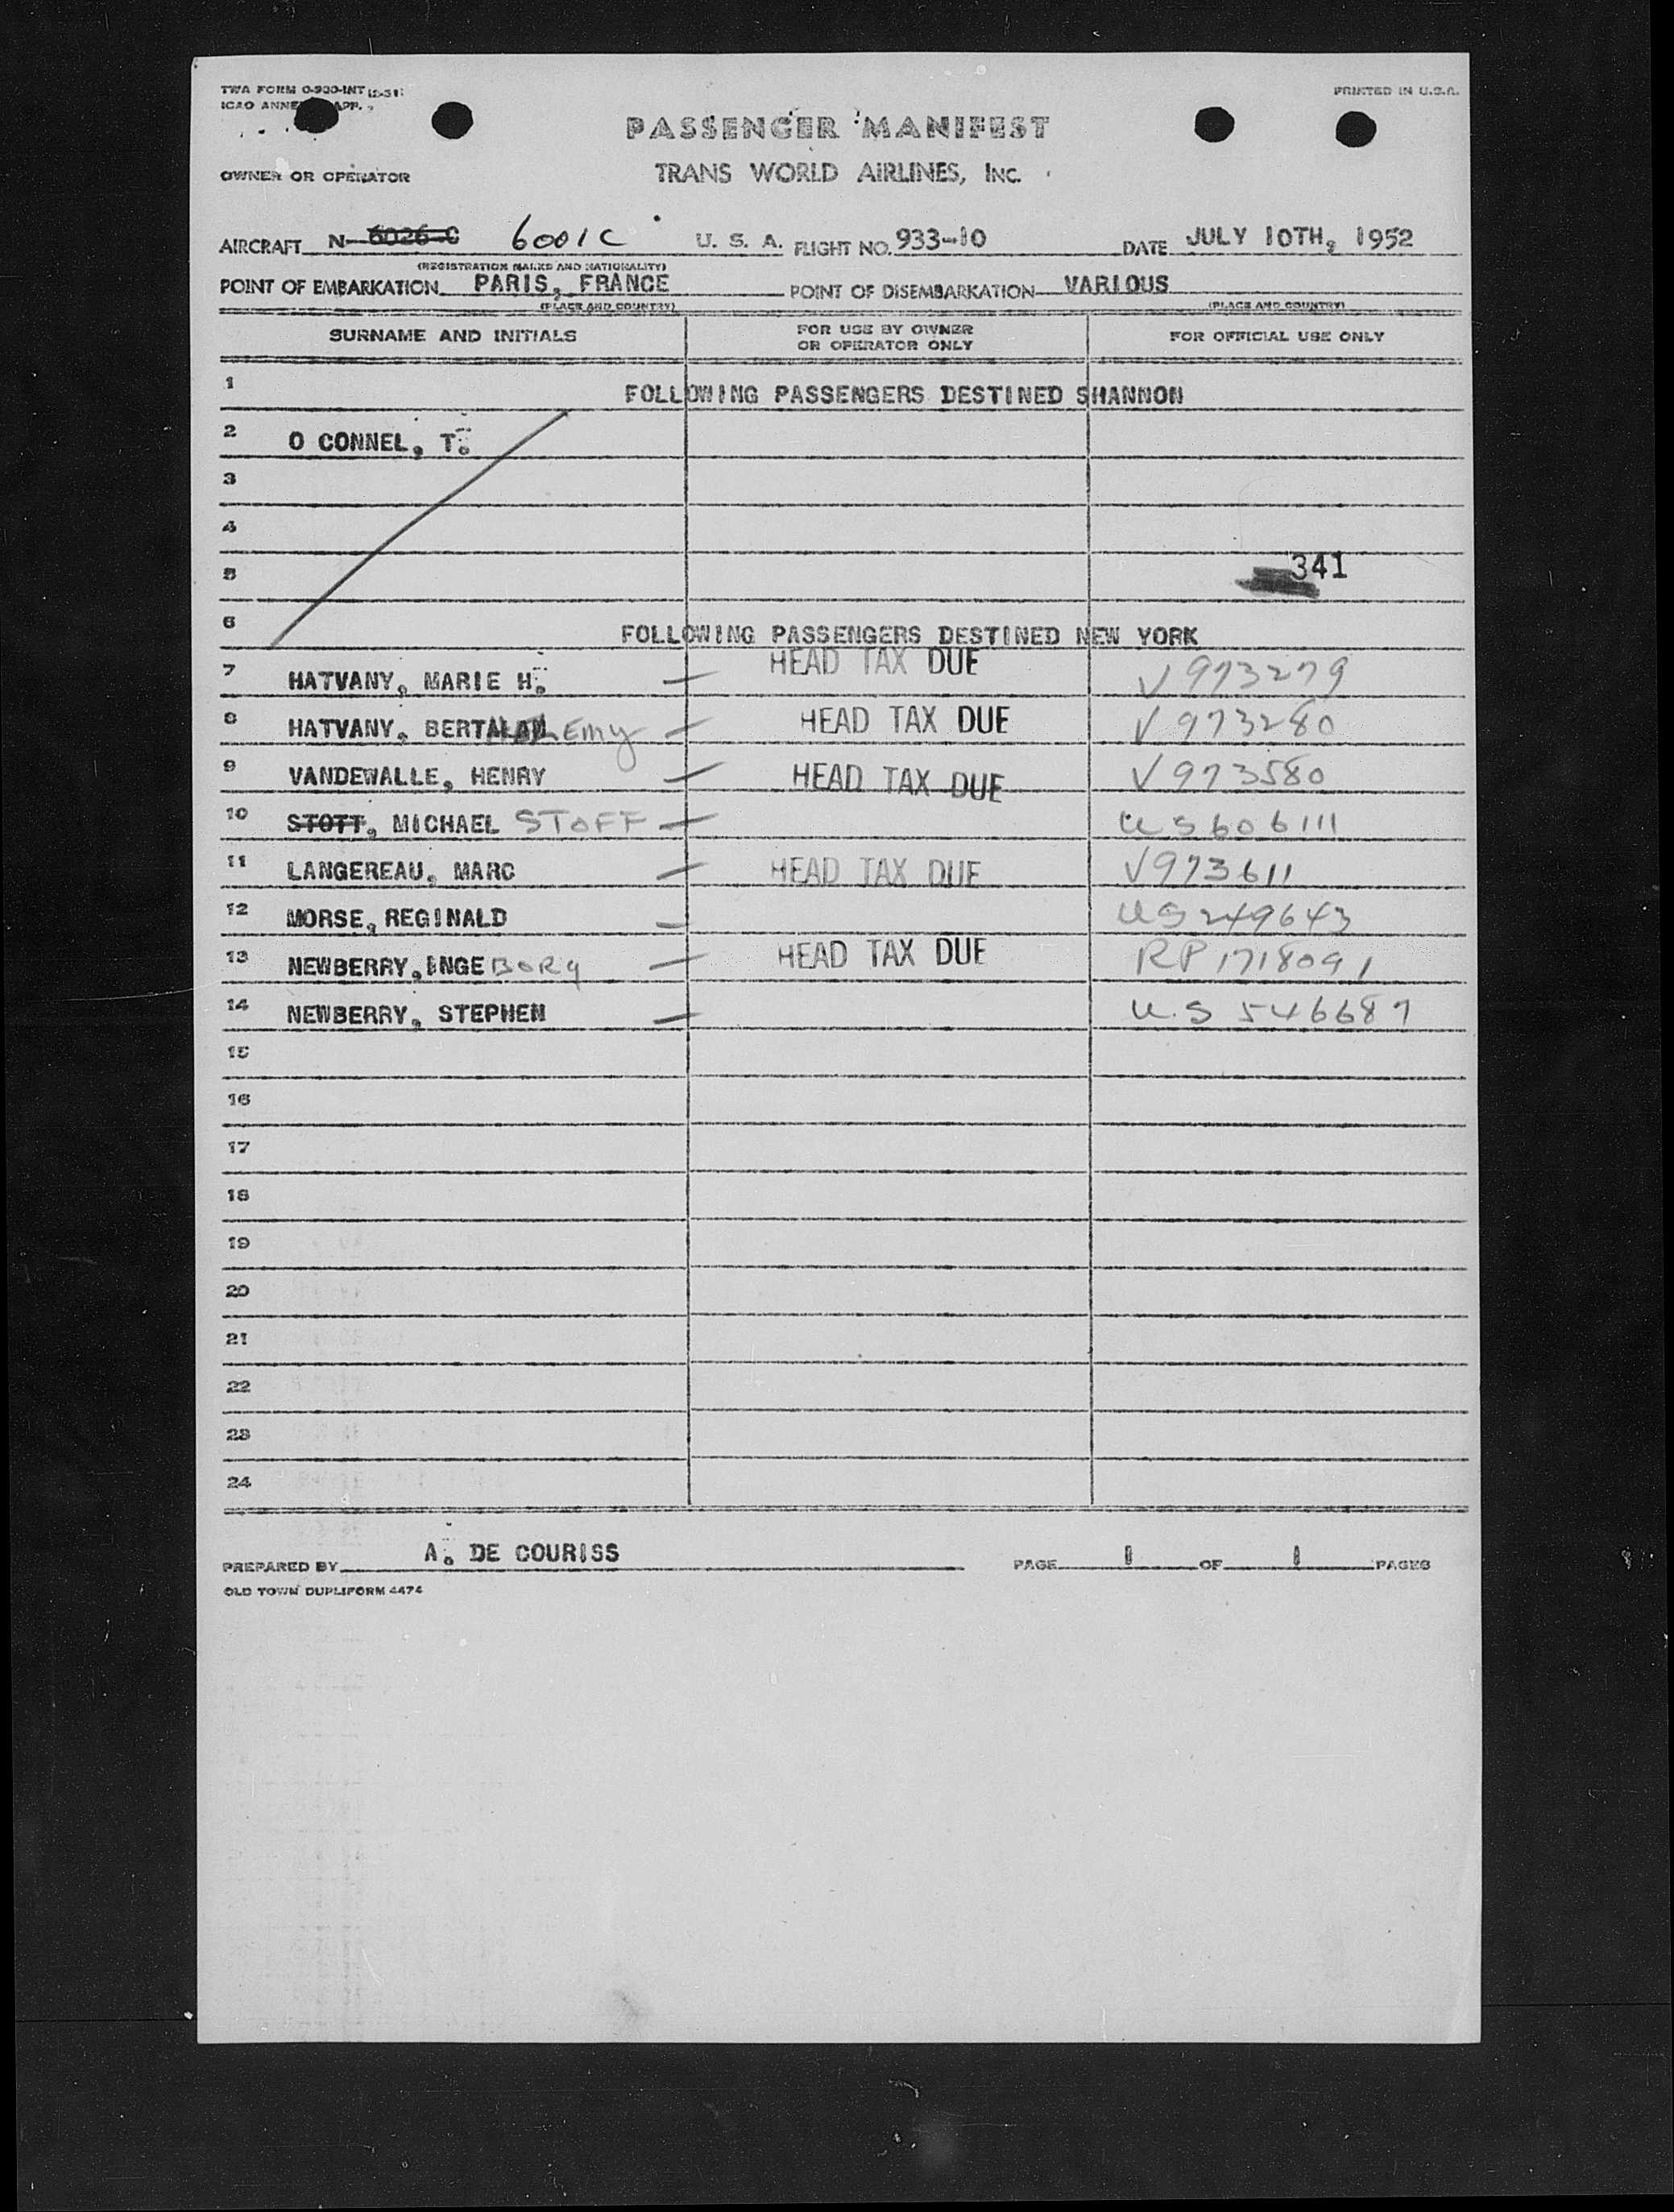 TWA FORM O-900-INT
PRINTED IN U.S.A.
ICAO ANNEX APP.
PASSENGER MANIFEST
OWNER OR OPERATOR
TRANS WORLD AIRLINES, INC.
AIRCRAFT N-6026-C 6001C U. S. A. FLIGHT NO. 933-10 DATE JULY 10TH, 1952
(REGISTRATION MARKS AND NATIONALITY)
POINT OF EMBARKATION PARIS, FRANCE POINT OF DISEMBARKATION VARIOUS
(PLACE AND COUNTRY) (PLACE AND COUNTRY)
SURNAME AND INITIALS FOR USE BY OWNER OR OPERATOR ONLY FOR OFFICIAL USE ONLY
1 FOLLOWING PASSENGERS DESTINED SHANNON
2 O CONNEL, T.
3
4
5 341
6 FOLLOWING PASSENGERS DESTINED NEW YORK
7 HATVANY, MARIE H. — HEAD TAX DUE V 973279
8 HATVANY, BERTALAN Emy — HEAD TAX DUE V 973280
9 VANDEWALLE, HENRY — HEAD TAX DUE V 973580
10 STOTT, MICHAEL STOFF — US 606111
11 LANGEREAU, MARC — HEAD TAX DUE V973611
12 MORSE, REGINALD — US 249643
13 NEWBERRY, INGEBORG — HEAD TAX DUE RP 1718091
14 NEWBERRY, STEPHEN — U.S 546687
15
16
17
18
19
20
21
22
23
24
PREPARED BY A. DE COURISS PAGE 1 OF 1 PAGES
OLD TOWN DUPLIFORM 4474